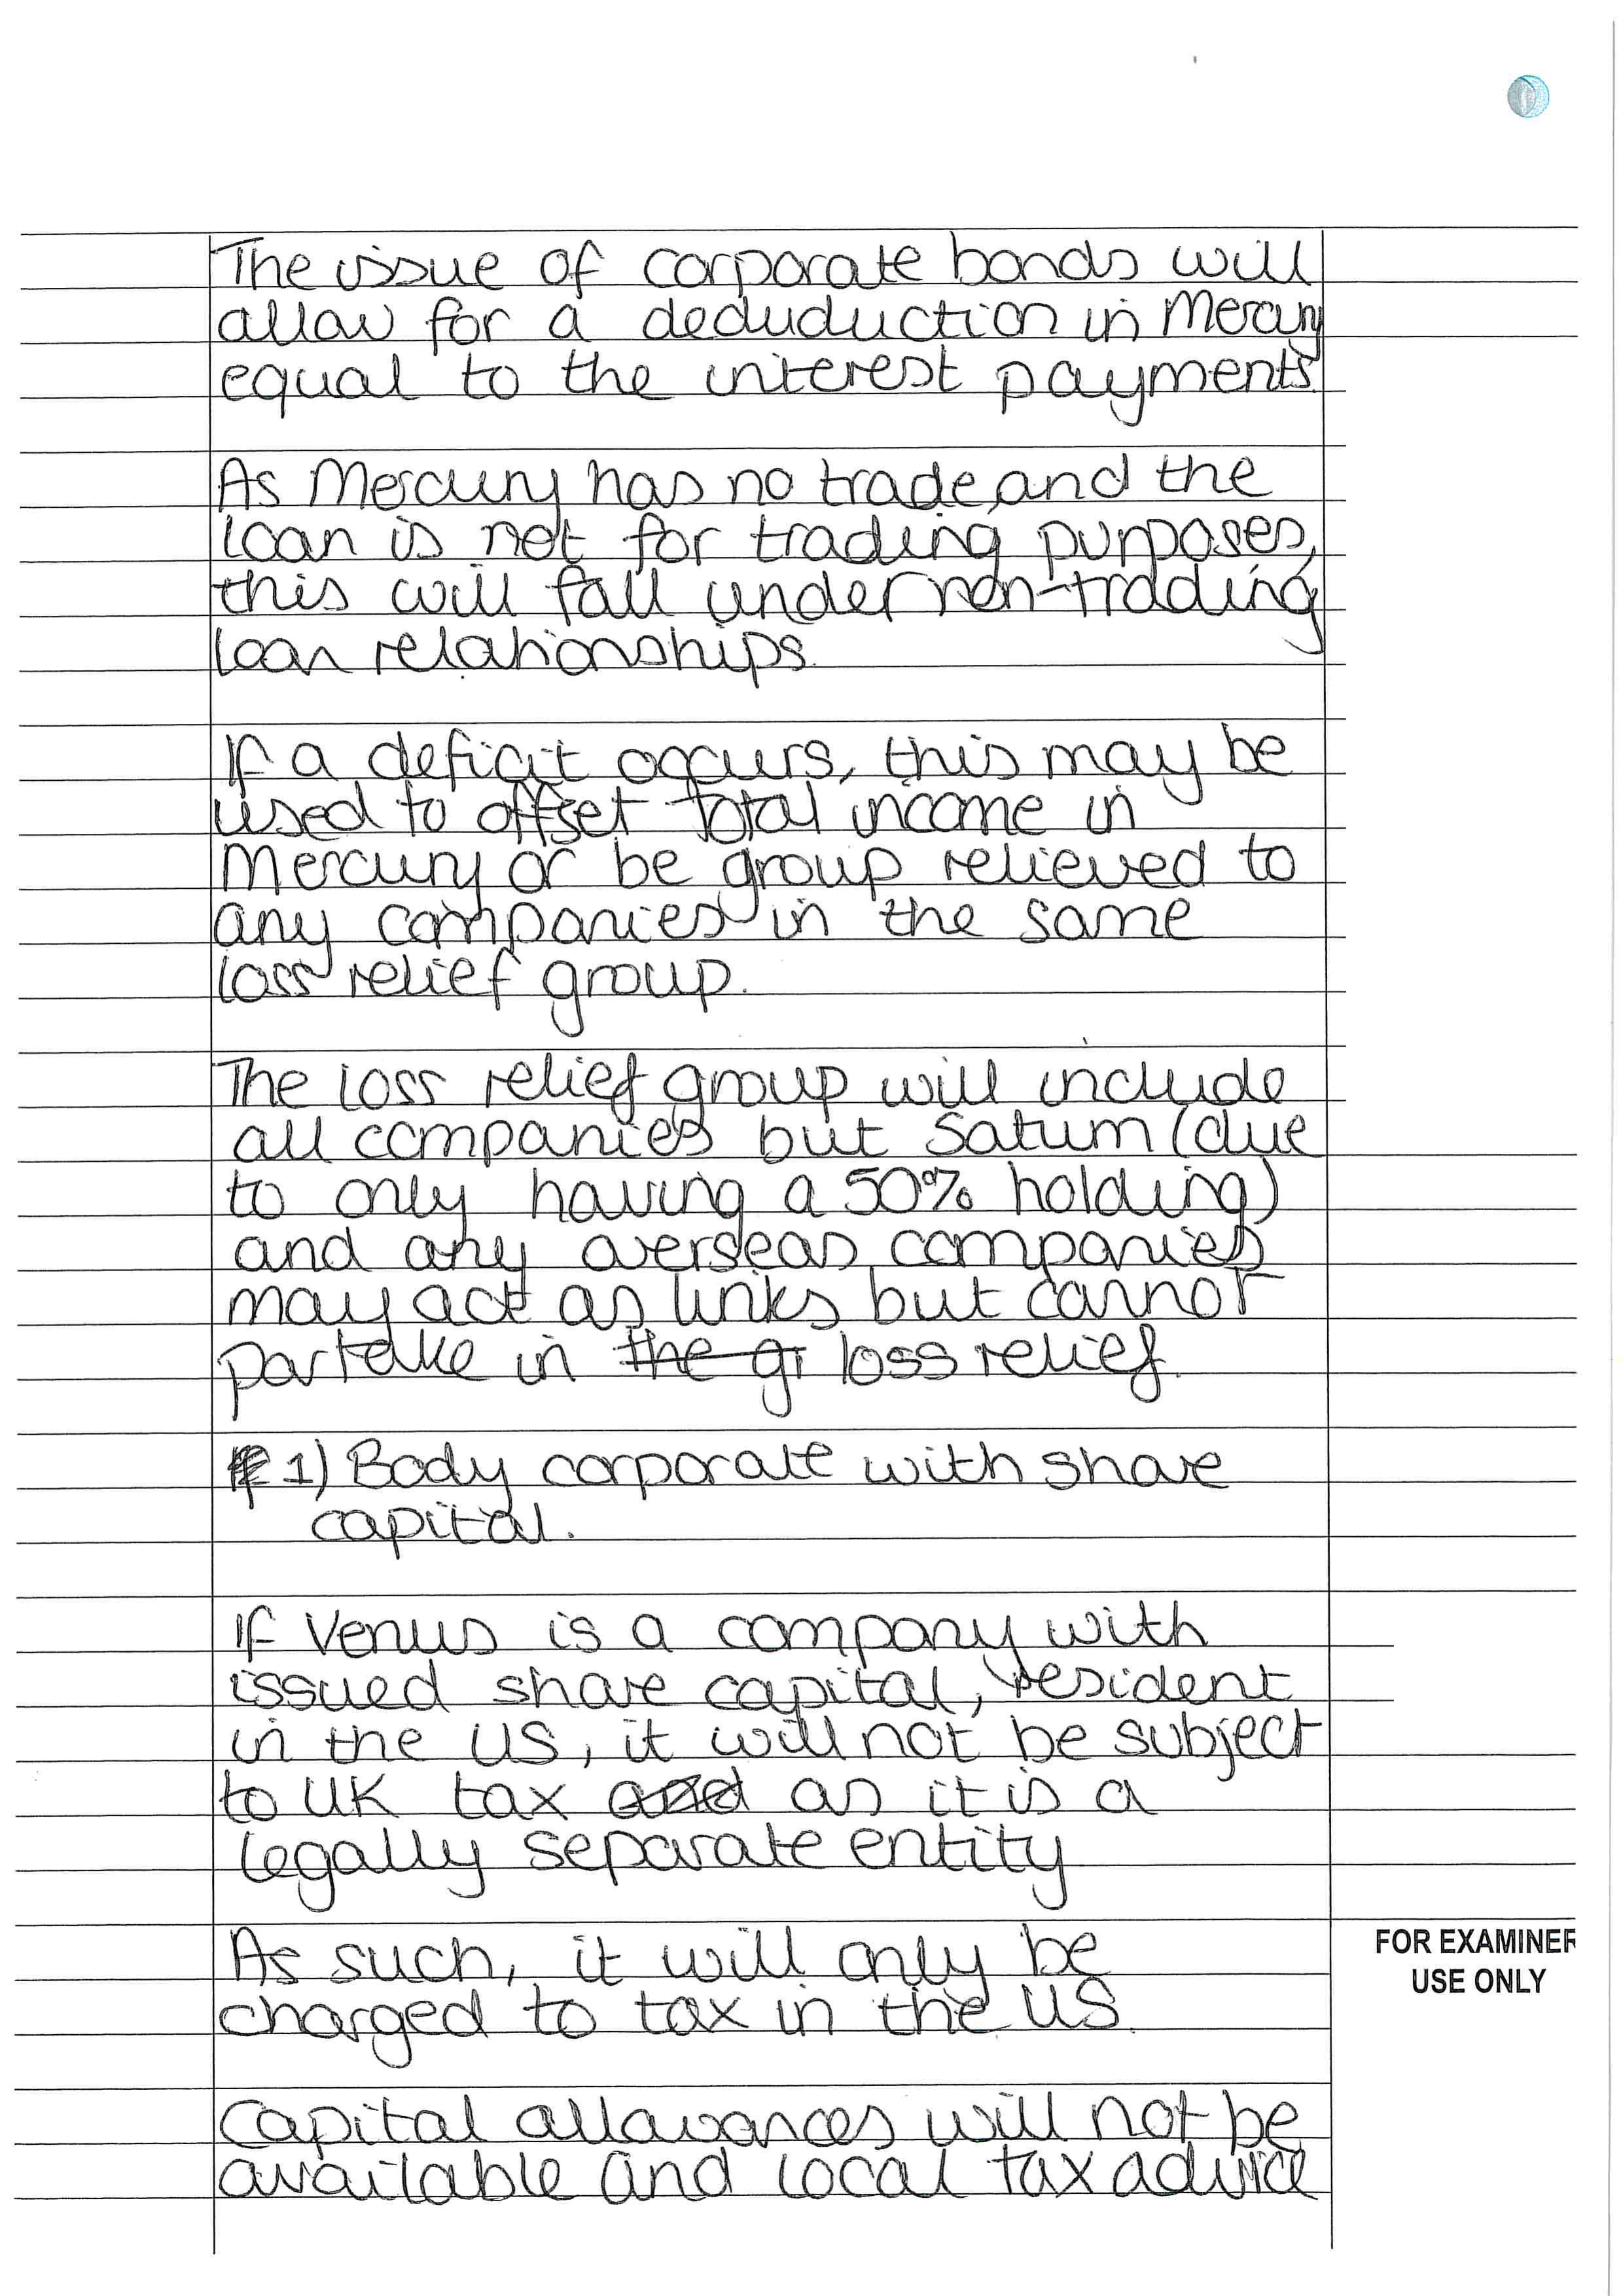 The issue of corporate bonds will
allow for a deduduction in Mercury
equal to the interest payments.
As Mercury has no trade, and the
loan is not for trading purposes,
this will fall under non-trading
loan relationships.
If a deficit occurs, this may be
used to offset total income in
Mercury or be group relieved to
any companies in the same
loss relief group.
The loss relief group will include
all companies but Saturn (due
to only having a 50% holding)
and any overseas companies
may act as links but cannot
partake in the gr loss relief.
1) Body corporate with share
capital.
If Venus is a company with
issued share capital, resident
in the US, it will not be subject
to UK tax and as it is a
legally separate entity
As such, it will only be
charged to tax in the US.
Capital allowances will not be
available and local tax advice
FOR EXAMINER
USE ONLY